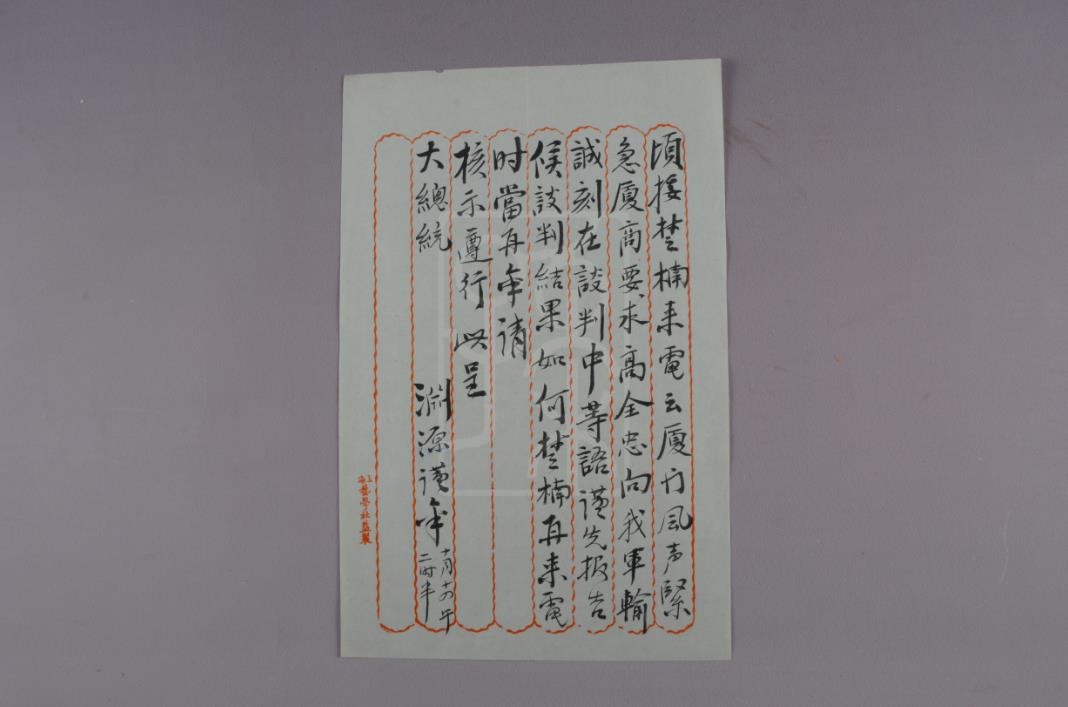 頃接楚楠来電云廈门風声緊
急廈商要求高全忠向我軍輸
誠刻在談判中等語謹先报告
俟談判結果如何楚楠再来電
时當再奉請
核示遵行此呈
大總統
淵源謹奉
十月十四午
二时半
藝學社監製